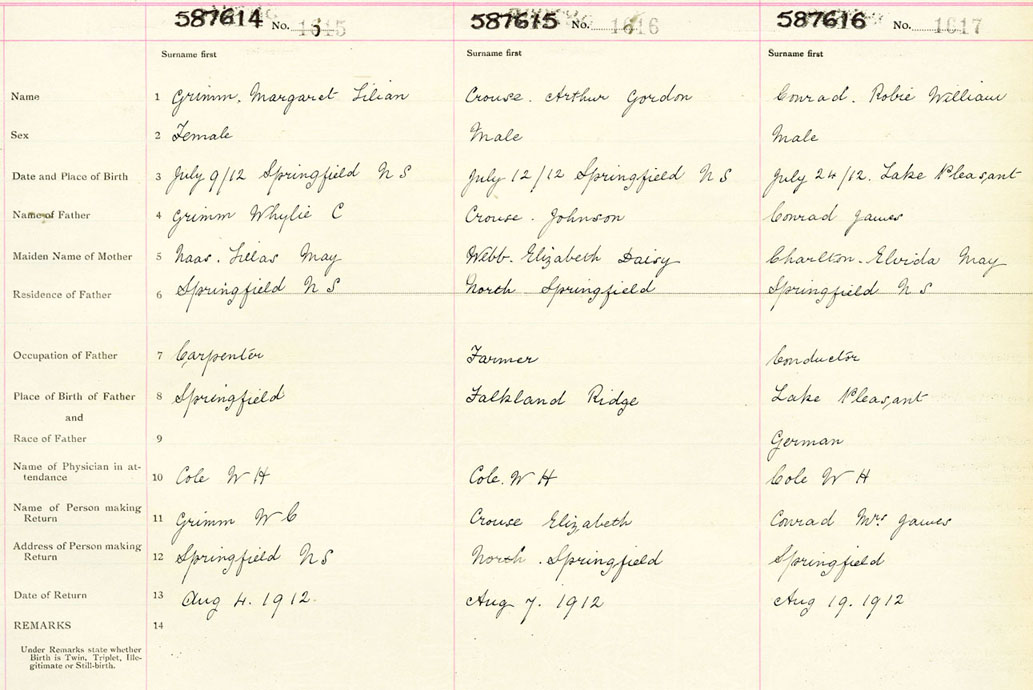 587614 No. 1615 587615 No. 1616 587616 No. 1617
Surname first Surname first Surname first
Name 1 Grimm. Margaret Lilian Crouse. Arthur Gordon Conrad. Robie William
Sex 2 Female Male Male
Date and Place of Birth 3 July 9/12 Springfield N S July 12/12 Springfield N S July 24/12. Lake Pleasant
Name of Father 4 Grimm Whylie C Crouse. Johnson Conrad James
Maiden Name of Mother 5 Naas. Lillas May Webb. Elizabeth Daisy Charlton. Elvida May
Residence of Father 6 Springfield N S North Springfield Springfield N S
Occupation of Father 7 Carpenter Farmer Conductor
Place of Birth of Father 8 Springfield Falkland Ridge Lake Pleasant
and
Race of Father 9 German
Name of Physician in at-
tendance 10 Cole W H Cole. W H Cole W H
Name of Person making
Return 11 Grimm W C Crouse Elizabeth Conrad Mrs James
Address of Person making
Return 12 Springfield N S North. Springfield Springfield
Date of Return 13 Aug 4. 1912. Aug 7. 1912 Aug 19. 1912
REMARKS 14
Under Remarks state whether
Birth is Twin, Triplet, Ille-
gitimate or Still-birth.